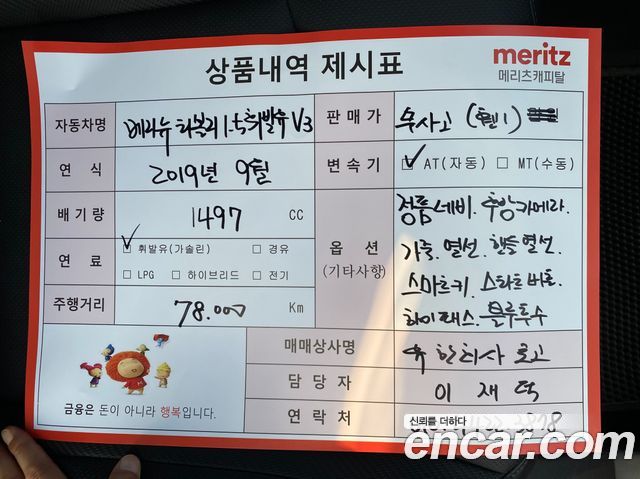 상품내역 제시표
meritz
메리츠캐피탈
자동차명 베리뉴 티볼리 1.5 휘발유 V3
판매가 무사고 (휀1)
연식 2019년 9월
변속기 ✓ AT(자동) □ MT(수동)
배기량 1497 CC
옵션 (기타사항)
정품네비. 후방카메라.
가죽. 열선. 핸들열선.
스마트키. 스타트버튼.
하이패스. 블루투스
연료 ✓ 휘발유(가솔린) □ 경유
□ LPG □ 하이브리드 □ 전기
주행거리 78.000 Km
매매상사명
담당자 이재덕
연락처
금융은 돈이 아니라 행복입니다.
신뢰를 더하다
encar.com